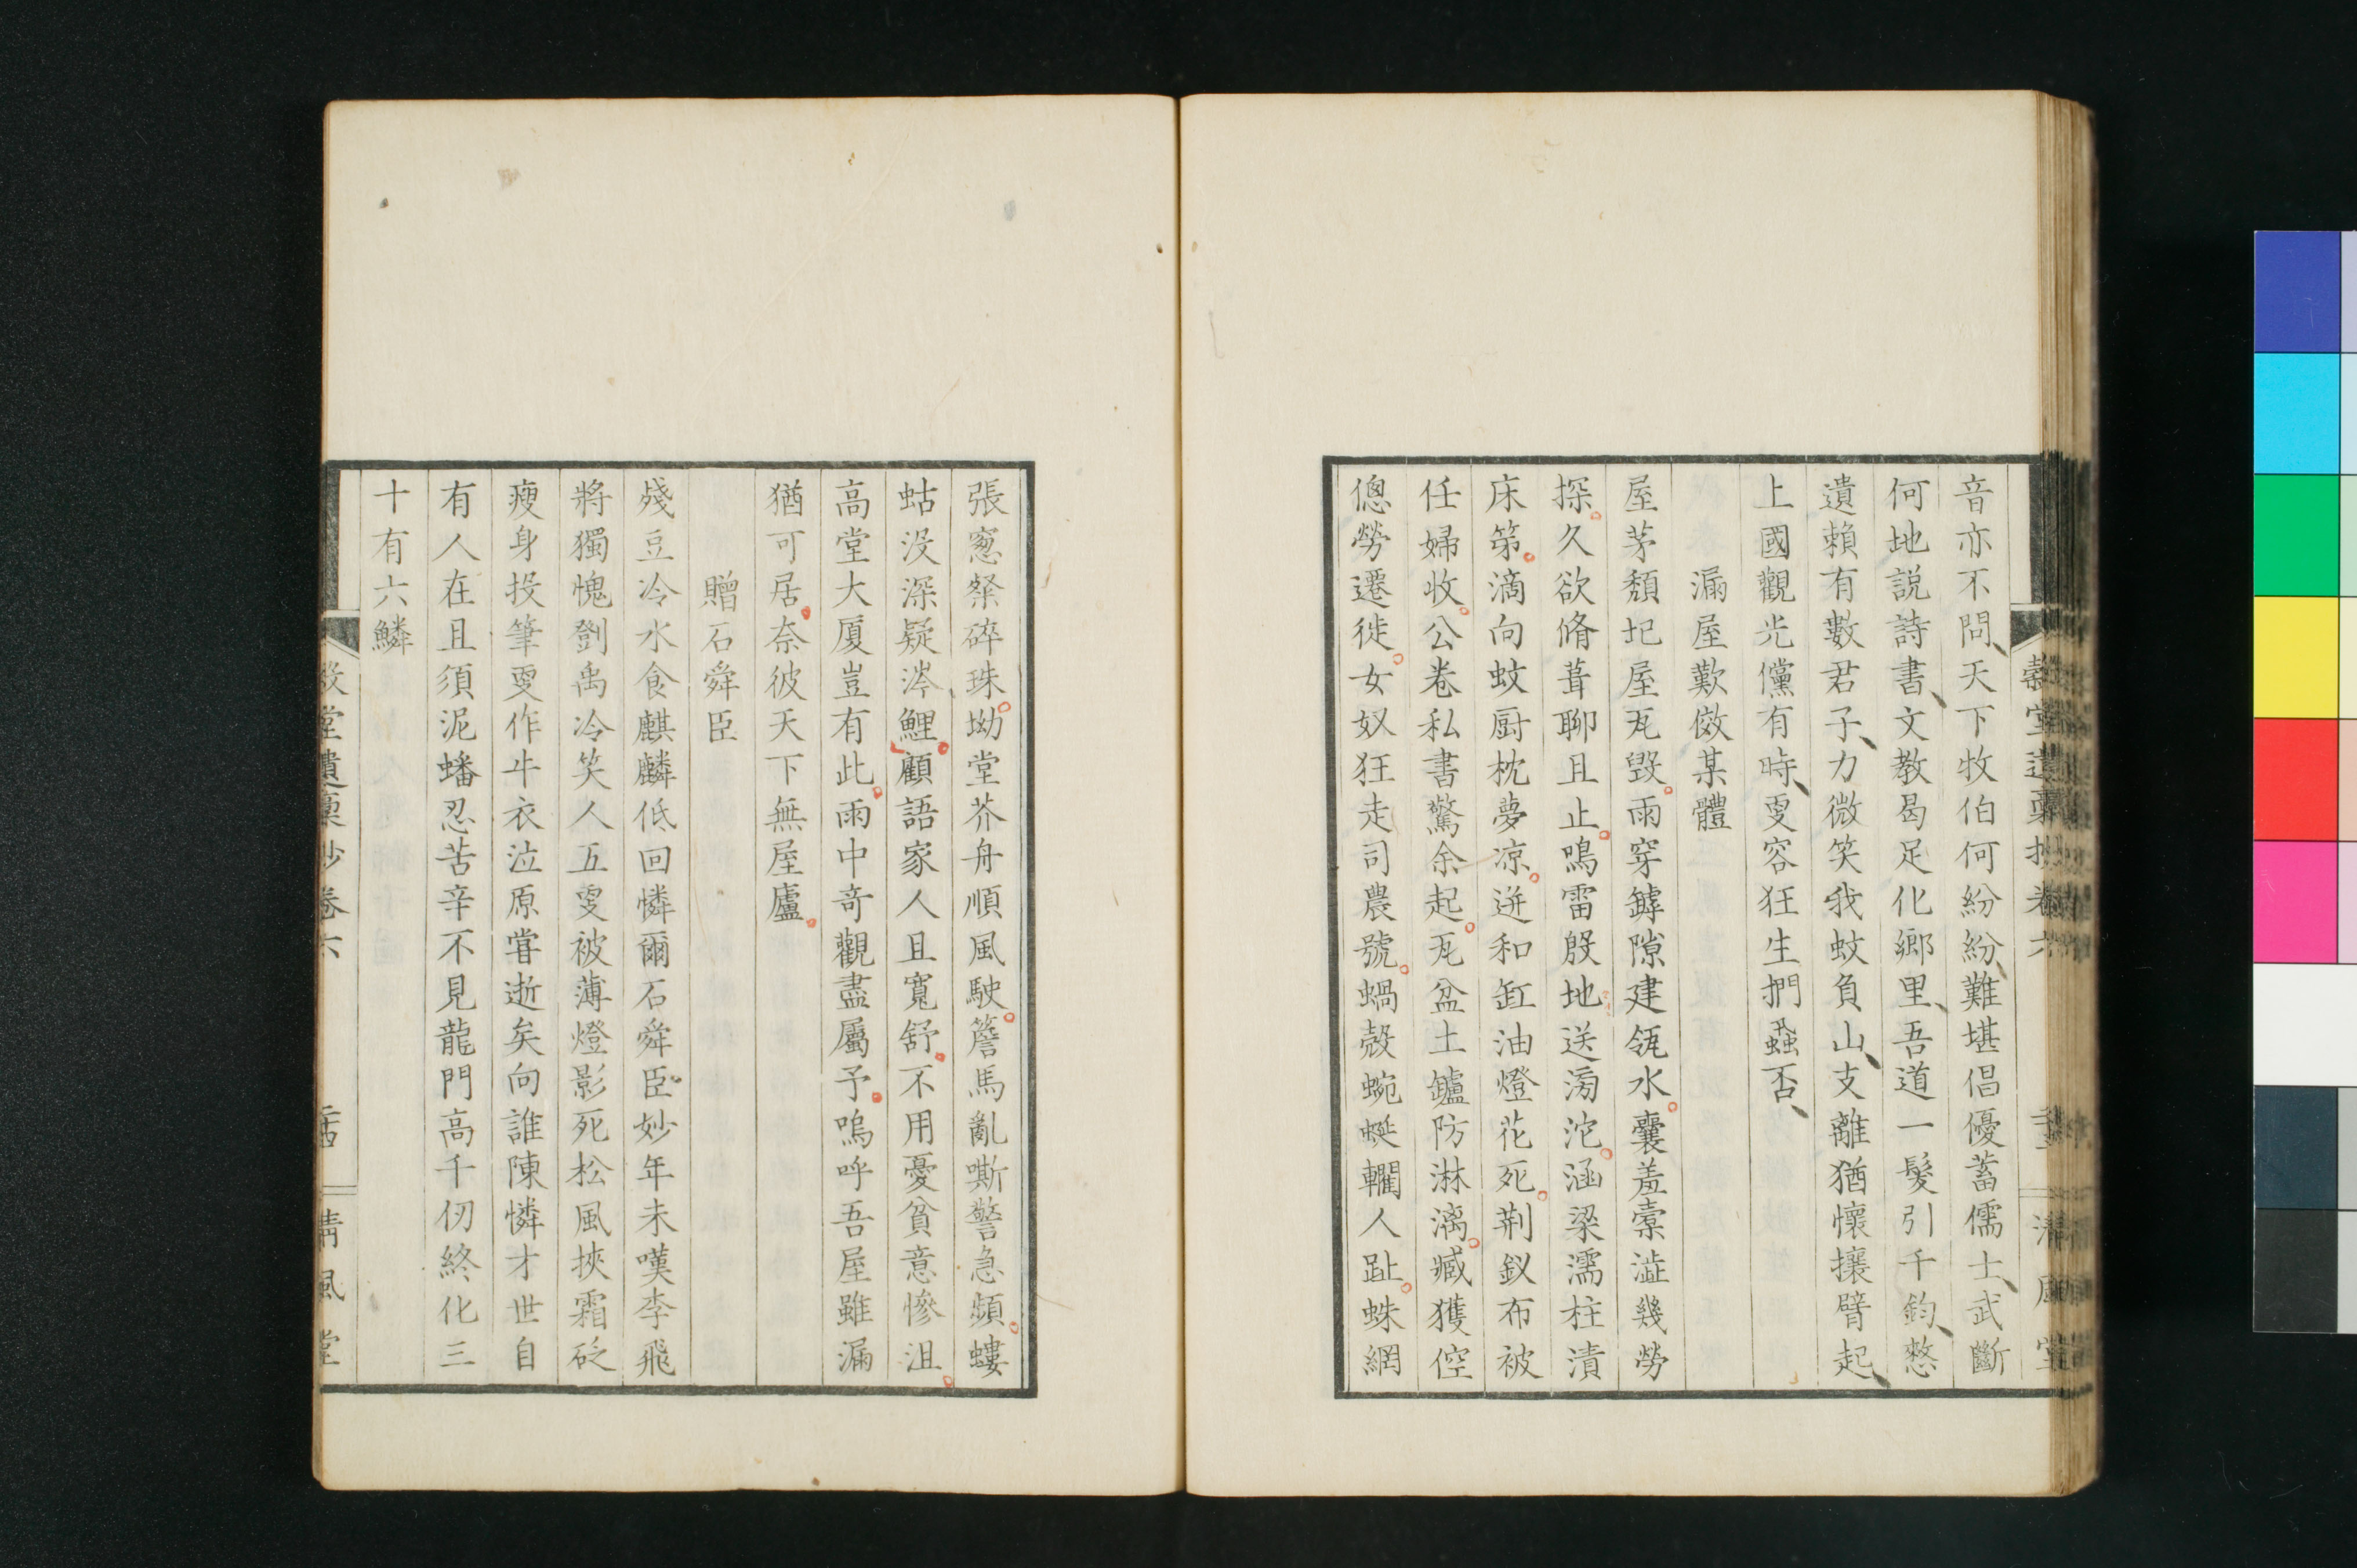 音亦不問天下牧伯何紛紛難堪倡優蓄儒士武斷
何地説詩書文教曷足化郷里吾道一髮引千鈞憖
遺賴有數君子力微笑我蚊負山支離猶懷攘臂起
上國觀光儻有時叓容狂生捫蝨否
漏屋歎倣某體
屋茅頽圮屋瓦毀雨穿罅隙建瓴水囊羞橐澁幾勞
探久欲脩葺聊且止鳴雷殷地送滂沱涵梁濡柱漬
床笫滴向蚊厨枕夢凉迸和缸油燈花死荆釵布被
任婦收公卷私書驚余起瓦盆土鑪防淋漓臧獲倥
傯勞遷徙女奴狂走司農號蝸殼蜿蜒轥人趾蛛網
張窓粲碎珠坳堂芥舟順風駛簷馬亂嘶警急頻螻
蛄没深疑涔鯉顧語家人且寬舒不用憂貧意慘沮
高堂大厦豈有此雨中奇觀盡屬予嗚呼吾屋雖漏
猶可居奈彼天下無屋廬
贈石舜臣
殘豆冷水食麒麟低回憐爾石舜臣妙年未嘆李飛
將獨愧劉禹冷笑人五叓被薄燈影死松風挾霜砭
瘦身投筆叓作牛衣泣原甞逝矣向誰陳憐才世自
有人在且須泥蟠忍苦辛不見龍門高千仞終化三
十有六鱗
堂遺稾抄卷六
清風堂